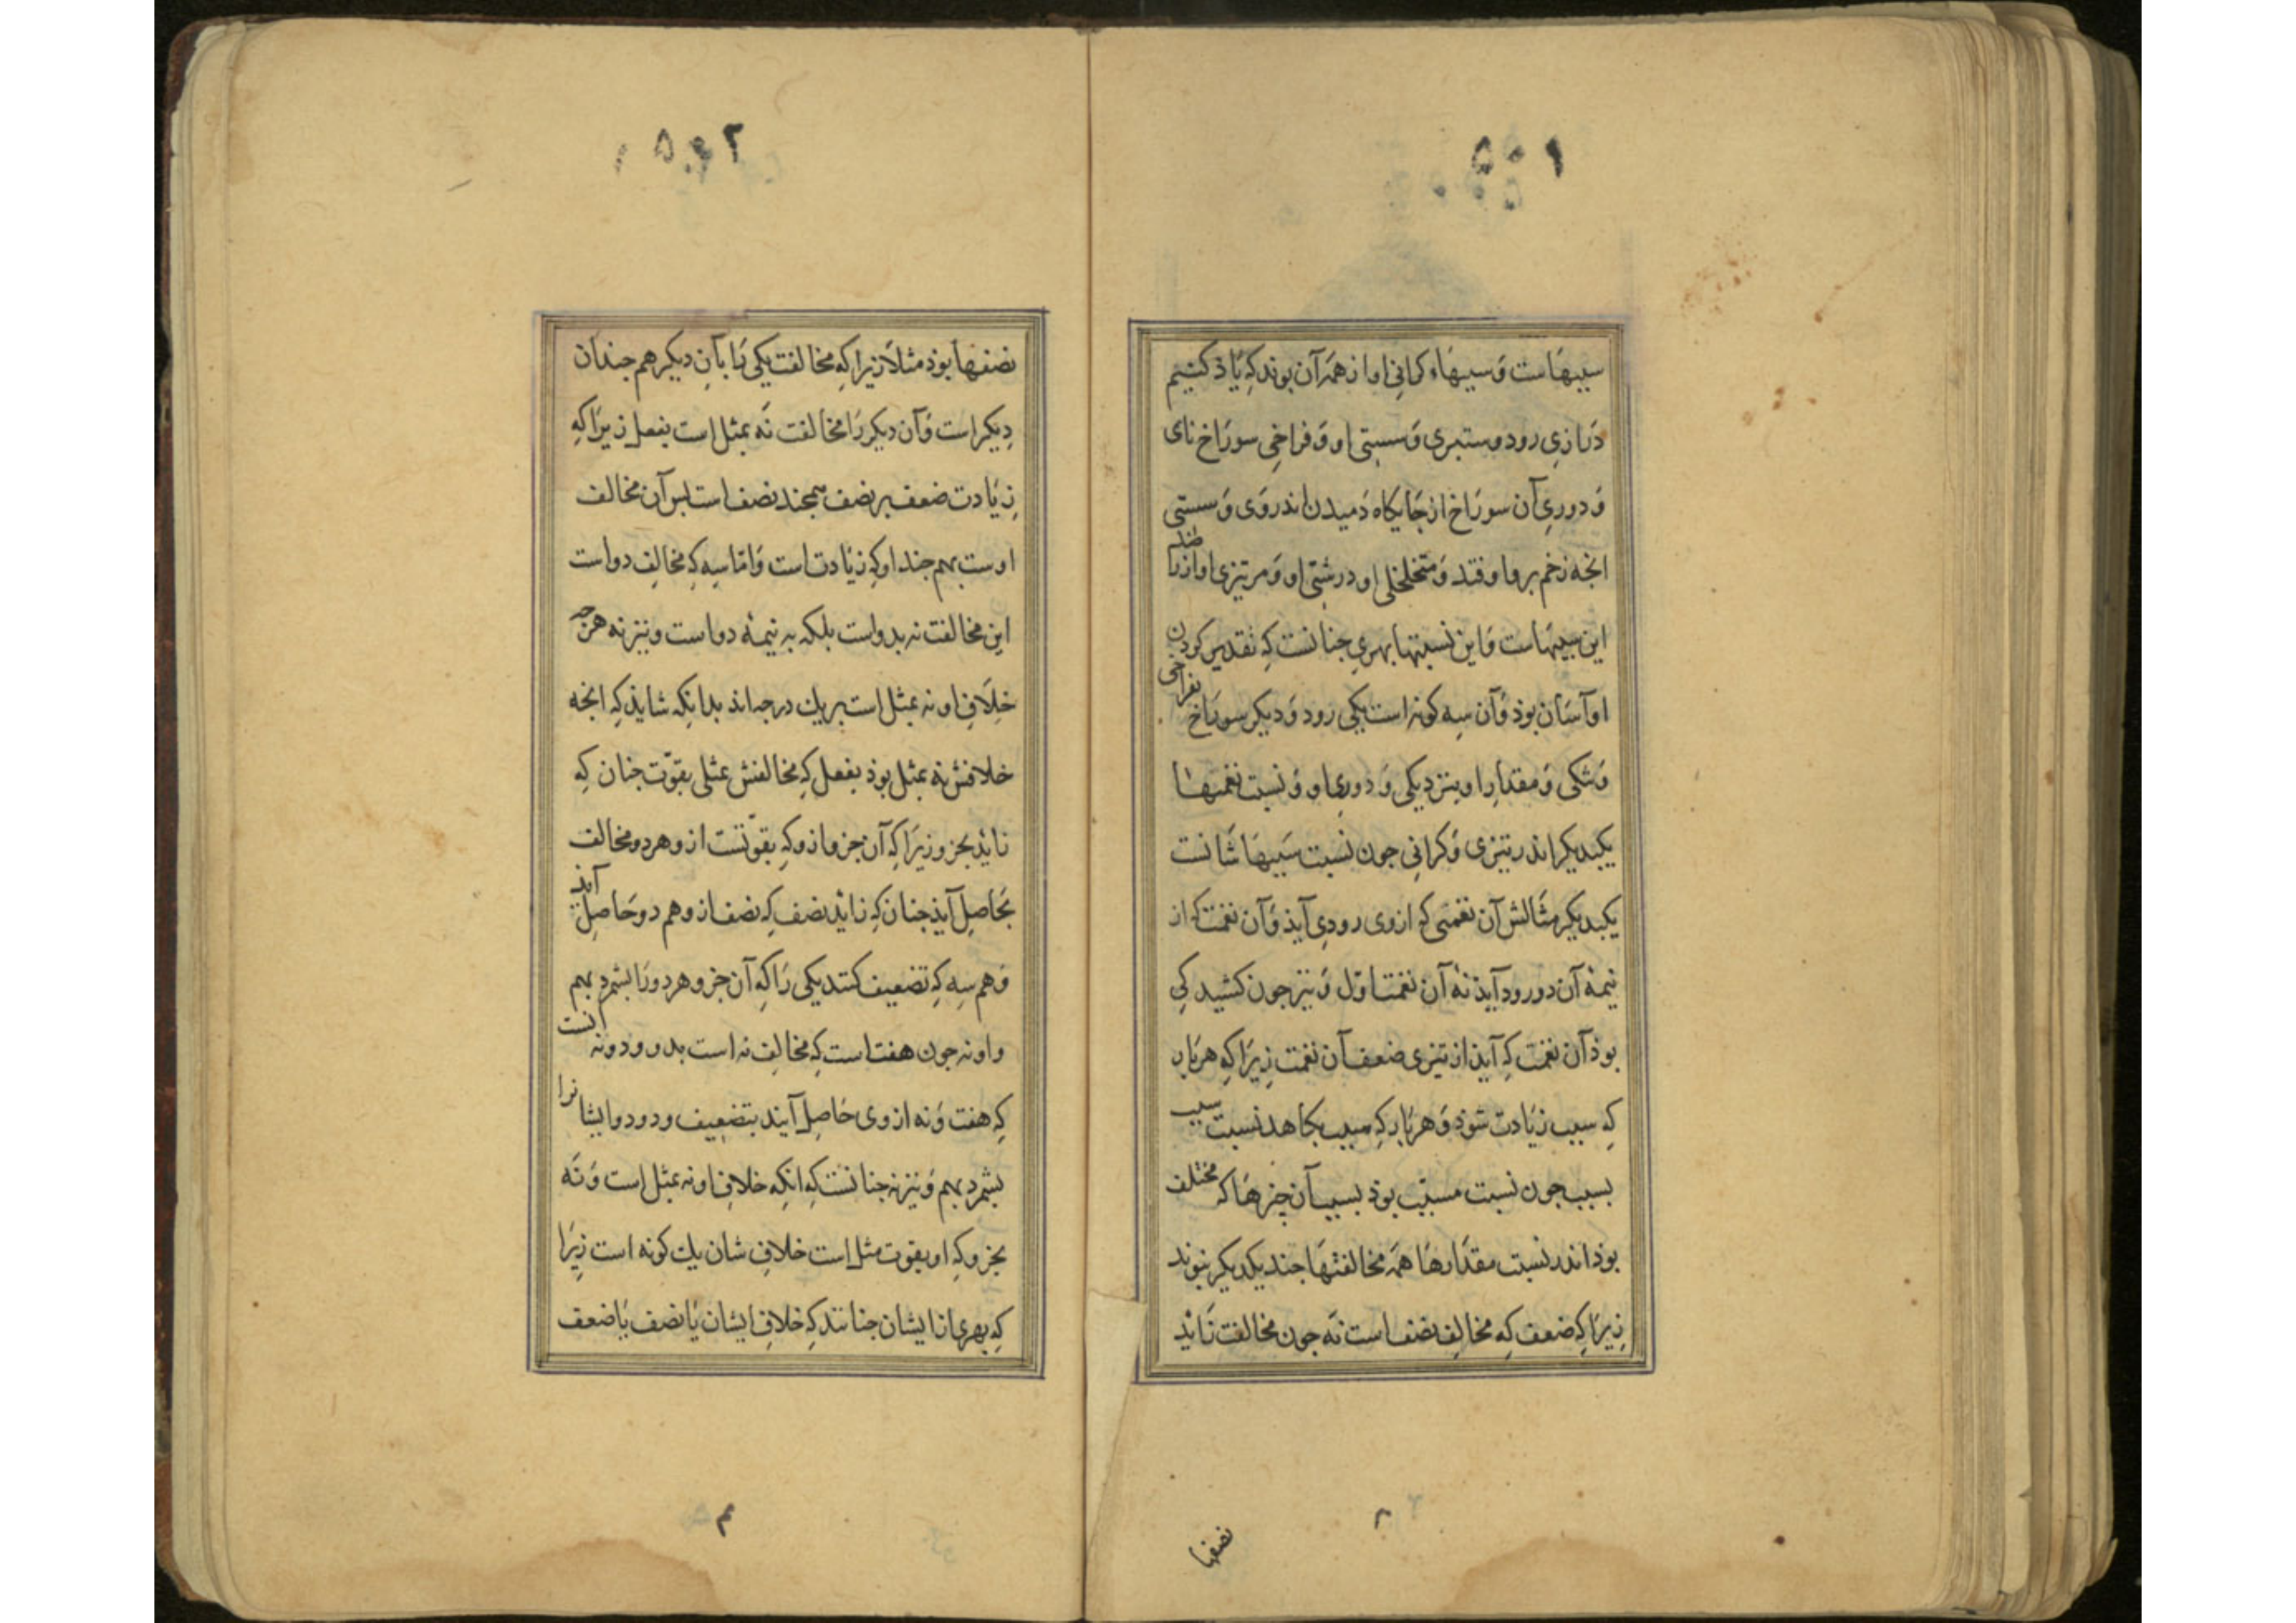 سببهاست وَسببهاء کرانی اواز همَه آن بوند کِه یَاذ کنیم
دَرازیِ رود وستبری وَسستی او وَفراخیِ سورَاخ نای
وَدوریِ آن سورَاخ از جَایکَاه دَمیدن اندروَی وَسستی
انجه زخم برو اوفتد وَمتخلخلی او درشتی او وَمر تیزی اواز را ضد
این سببهَاست وَاین نسبتها بهریِ جنانست کِه تقدیر کردن
او آسَان بوذ وَآن سِه کونه است یکی رود وَدیکر سورَاخ بفراخی
وَتنکی وَمقدارِ او بنزدیکی وَدوریِ او وَنسبت نغمتهَا
یکبدیکر اندر تیزی وَکرانی جون نسبت سَببهَاشَانست
یکبدیکر مثَالش آن نغمتی کِه ازوی رودی آیذ وَآن نغمت کِه از
نیمهٔ آن دو رود آیذ نهٔ آن نغمت اوّل وَنیز جون کشیدکی
بوذ آن نغمت کِه آیذ از تیزی ضعف آن نغمت زِیرَا کِه هربَار
کِه سبب زیَادت شوذ وَهربَار کِه سبب بکاهد نسبت سبب
بسبب جون نسبت مسبّب بوذ بسبب آن جیزهَا کِه مختلف
بوذ اندر نسبت مقدَارهَا همَه مخالفتهَا جند یکدیکر نبوند
زِیرَا کِه ضعف کِه مخالِف نصف است نَه جون مخالفت زَائذ
نصفها
نصفهَا بوذ مثلاً زیرا کِه مخالفت یکی رَا بآنِ دیکر هم جندان
دِیکر است وَآن دیکر رَا مخالفت نَه بمثل است بفعل زیرَا کِه
زِیَادت ضعف بر نصف همجند نصف است بس آن مخالف
اوست بهم جند او کِه زیَادت است وَامّا سِه کِه مخالِف دو است
این مخالفت نه بدو است بلکه به نیمهٔ دو است ونیز نه هرجه
خِلَافِ او نه بمثل است بریک درجه اند بدانکه شایذ کِه انجه
خلافش نه بمثل بوذ بفعل کِه مخالفتش بمثلی بقوّت جنان کِه
زائد بجزو زیرَا کِه آن جزو ازو کِه بقوّتست ازو هر دو مخالف
بحَاصِل آیذ جنان کِه زائد نصف کِه نصف ازو هم دو حَاصِل آیذ
وَهم سِه کِه تضعیف کنند یکی رَا کِه آن جزو هر دو رَا بشمرد بهم
واو نه جون هفت است کِه مخالِف نه است بدو ودو نه انست
کِه هفت وَنه ازوی حَاصِل آیند بتضعیف ودو دو ایشانرا
بشمرد بهم وَنیز نه جنانست کِه انکِه خلافِ او نه بمثل است وَنَه
بجزو کِه او بقوت مثل است خلافِ شان یک کونه است زیرَا
کِه بهری از ایشان جنانند کِه خلافِ ایشان یَا نصف یَا ضعف